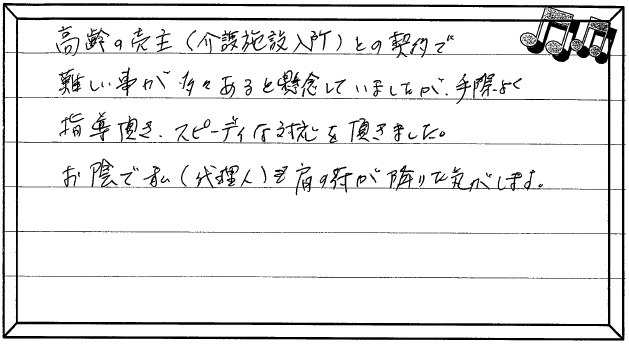 高齢の売主（介護施設入所）との契約で
難しい事が多々あると懸念していましたが、手際よく
指導頂き、スピーディな対応を頂きました。
お陰で私（代理人）も肩の荷が降りた気がします。